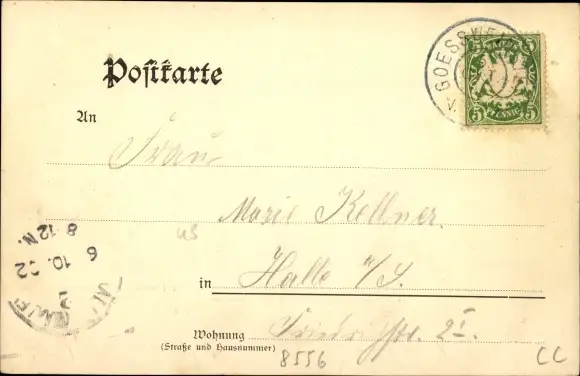 Postkarte
GOESSWE
BAYERN
5 5
PFENNIG
An
Frau
Marie Kellner.
US
in Halle a/S.
8-12 N.
6 10. 02
Wohnung
(Straße und Hausnummer)
2 I.
8556
CC